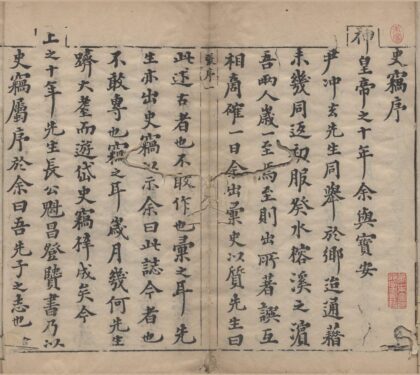 史竊序
神皇帝之十年余與寶安
尹冲玄先生同舉於鄉迨通籍
未幾同返初服癸水榕溪之濵
吾兩人歲一至焉至則出所著譔互
相商確一日余出彙史以質先生曰
序一
此述古者也不敢作也彙之耳先
生亦出史竊以示余曰此誌今者也
不敢專也竊之耳歲月幾何先生
躋大耋而遊岱史竊梓成矣今
上之十年先生長公魁昌登贒書乃以
史竊屬序於余曰吾先子之志也